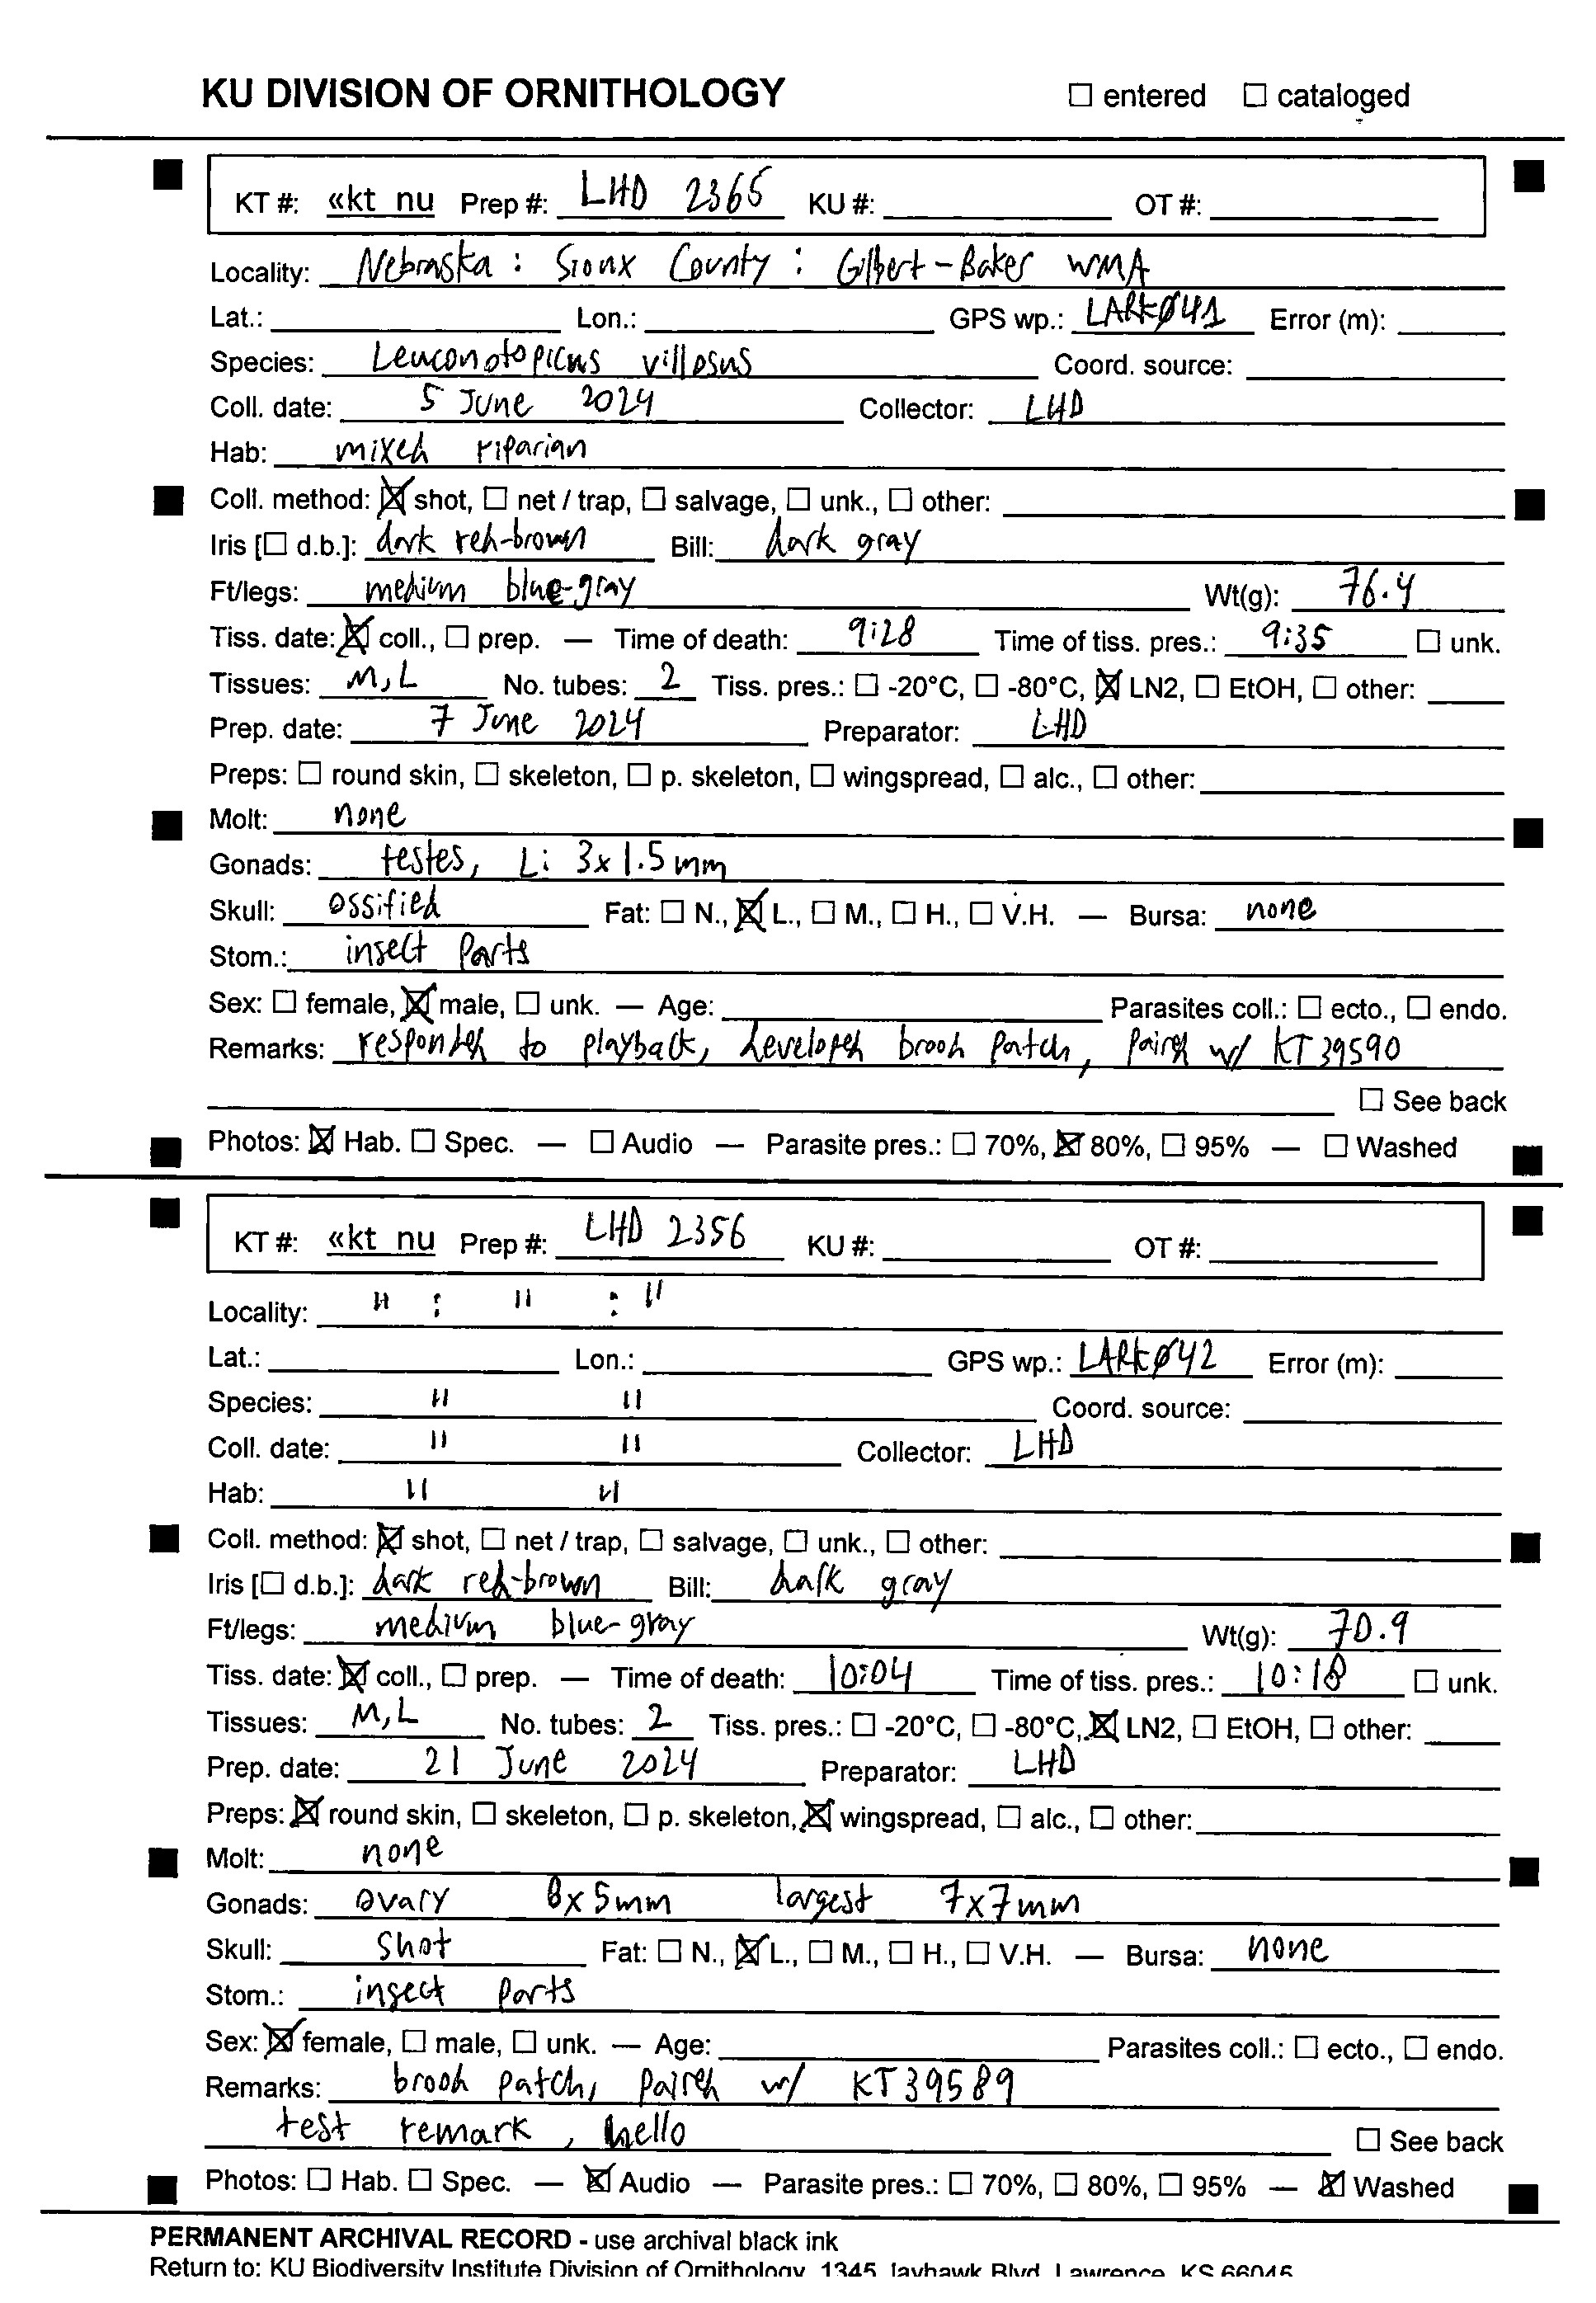 KU DIVISION OF ORNITHOLOGY ☐ entered ☐ cataloged
KT #: «kt nu Prep #: LHD 2365 KU #: OT #:
Locality: Nebraska : Sioux County : Gilbert-Baker WMA
Lat.: Lon.: GPS wp.: LARKØ41 Error (m):
Species: Leuconotopicus villosus Coord. source:
Coll. date: 5 June 2024 Collector: LHD
Hab: mixed riparian
Coll. method: ☒ shot, ☐ net / trap, ☐ salvage, ☐ unk., ☐ other:
Iris [☐ d.b.]: dark red-brown Bill: dark gray
Ft/legs: medium blue-gray Wt(g): 76.4
Tiss. date: ☒ coll., ☐ prep. — Time of death: 9:28 Time of tiss. pres.: 9:35 ☐ unk.
Tissues: M,L No. tubes: 2 Tiss. pres.: ☐ -20°C, ☐ -80°C, ☒ LN2, ☐ EtOH, ☐ other:
Prep. date: 7 June 2024 Preparator: LHD
Preps: ☐ round skin, ☐ skeleton, ☐ p. skeleton, ☐ wingspread, ☐ alc., ☐ other:
Molt: none
Gonads: testes, L: 3x1.5mm
Skull: ossified Fat: ☐ N., ☒ L., ☐ M., ☐ H., ☐ V.H. — Bursa: none
Stom.: insect parts
Sex: ☐ female, ☒ male, ☐ unk. — Age: Parasites coll.: ☐ ecto., ☐ endo.
Remarks: responded to playback, developed brood patch, paired w/ KT39590
☐ See back
Photos: ☒ Hab. ☐ Spec. — ☐ Audio — Parasite pres.: ☐ 70%, ☒ 80%, ☐ 95% — ☐ Washed
KT #: «kt nu Prep #: LHD 2356 KU #: OT #:
Locality: " : " : "
Lat.: Lon.: GPS wp.: LARKØ42 Error (m):
Species: " " Coord. source:
Coll. date: " " Collector: LHD
Hab: " "
Coll. method: ☒ shot, ☐ net / trap, ☐ salvage, ☐ unk., ☐ other:
Iris [☐ d.b.]: dark red-brown Bill: dark gray
Ft/legs: medium blue-gray Wt(g): 70.9
Tiss. date: ☒ coll., ☐ prep. — Time of death: 10:04 Time of tiss. pres.: 10:18 ☐ unk.
Tissues: M,L No. tubes: 2 Tiss. pres.: ☐ -20°C, ☐ -80°C, ☒ LN2, ☐ EtOH, ☐ other:
Prep. date: 21 June 2024 Preparator: LHD
Preps: ☒ round skin, ☐ skeleton, ☐ p. skeleton, ☒ wingspread, ☐ alc., ☐ other:
Molt: none
Gonads: ovary 8x5mm largest 7x7mm
Skull: shot Fat: ☐ N., ☒ L., ☐ M., ☐ H., ☐ V.H. — Bursa: none
Stom.: insect parts
Sex: ☒ female, ☐ male, ☐ unk. — Age: Parasites coll.: ☐ ecto., ☐ endo.
Remarks: brood patch, paired w/ KT39589
test remark, hello ☐ See back
Photos: ☐ Hab. ☐ Spec. — ☒ Audio — Parasite pres.: ☐ 70%, ☐ 80%, ☐ 95% — ☒ Washed
PERMANENT ARCHIVAL RECORD - use archival black ink
Return to: KU Biodiversity Institute Division of Ornithology, 1345 Jayhawk Blvd, Lawrence, KS 66045